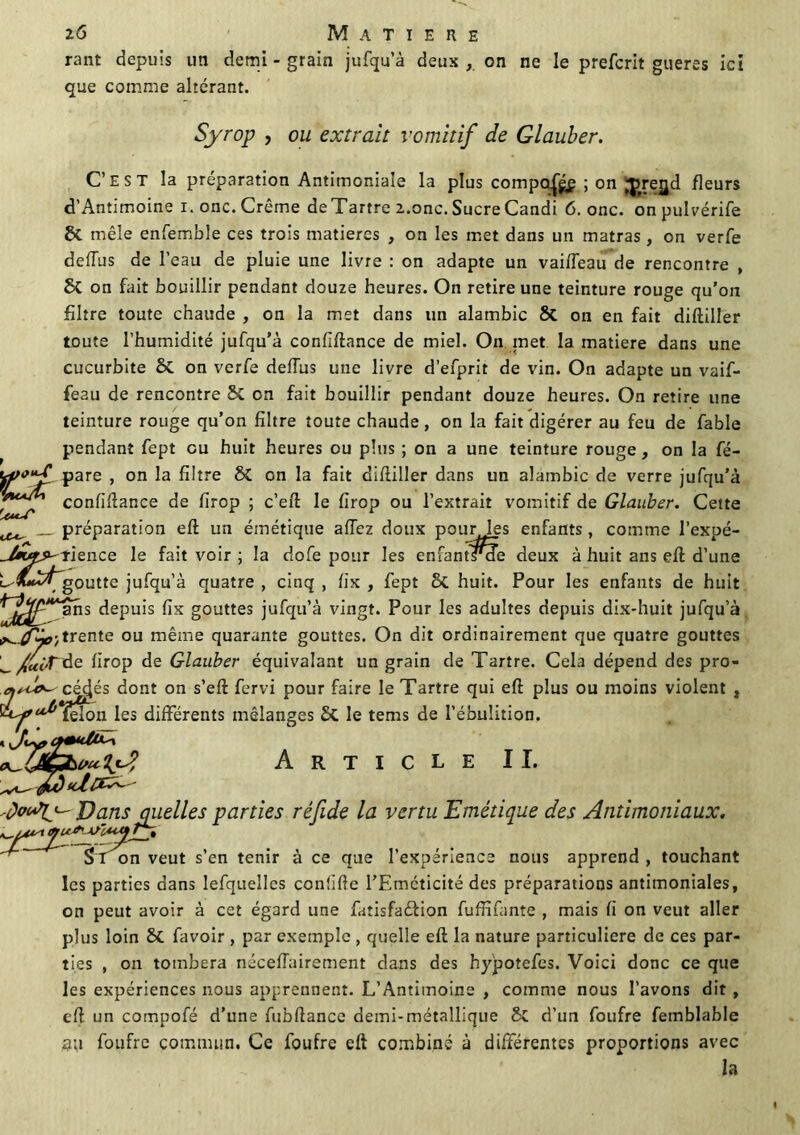 26 MATIERE
rant depuis un demi-grain jufqu'à deux, on ne le prefcrit gueres ici
que comme altérant.
Syrop, ou extrait vomitif de Glauber.
C'EST la préparation Antimoniale la plus compofée ; on prend fleurs
d'Antimoine 1. onc. Crême de Tartre 2.onc. Sucre Candi 6. onc. on pulvérife
& mêle enfemble ces trois matieres, on les met dans un matras, on verfe
deffus de l'eau de pluie une livre : on adapte un vaiffeau de rencontre,
& on fait bouillir pendant douze heures. On retire une teinture rouge qu'on
filtre toute chaude, on la met dans un alambic & on en fait diftiller
toute l'humidité jufqu'à confiftance de miel. On met la matiere dans une
cucurbite & on verfe deffus une livre d'efprit de vin. On adapte un vaif-
feau de rencontre & on fait bouillir pendant douze heures. On retire une
teinture rouge qu'on filtre toute chaude, on la fait digérer au feu de fable
pendant fept ou huit heures ou plus ; on a une teinture rouge, on la fé-
pare, on la filtre & on la fait diftiller dans un alambic de verre jufqu'à
confiftance de firop ; c'eft le firop ou l'extrait vomitif de Glauber. Cette
préparation eft un émétique affez doux pour les enfants, comme l'expé-
rience le fait voir ; la dofe pour les enfants de deux à huit ans eft d'une
goutte jufqu'à quatre, cinq, fix, fept & huit. Pour les enfants de huit
ans depuis fix gouttes jufqu'à vingt. Pour les adultes depuis dix-huit jufqu'à
trente ou même quarante gouttes. On dit ordinairement que quatre gouttes
de firop de Glauber équivalant un grain de Tartre. Cela dépend des pro-
cédés dont on s'eft fervi pour faire le Tartre qui eft plus ou moins violent,
felon les différents mêlanges & le tems de l'ébulition.
ARTICLE II.
Dans quelles parties réfide la vertu Emétique des Antimoniaux.
SI on veut s'en tenir à ce que l'expérience nous apprend, touchant
les parties dans lefquelles confifte l'Eméticité des préparations antimoniales,
on peut avoir à cet égard une fatisfaction fuffifante, mais fi on veut aller
plus loin & favoir, par exemple, quelle eft la nature particuliere de ces par-
ties, on tombera néceffairement dans des hypotefes. Voici donc ce que
les expériences nous apprennent. L'Antimoine, comme nous l'avons dit,
eft un compofé d'une fubftance demi-métallique & d'un foufre femblable
au foufre commun. Ce foufre eft combiné à différentes proportions avec
la